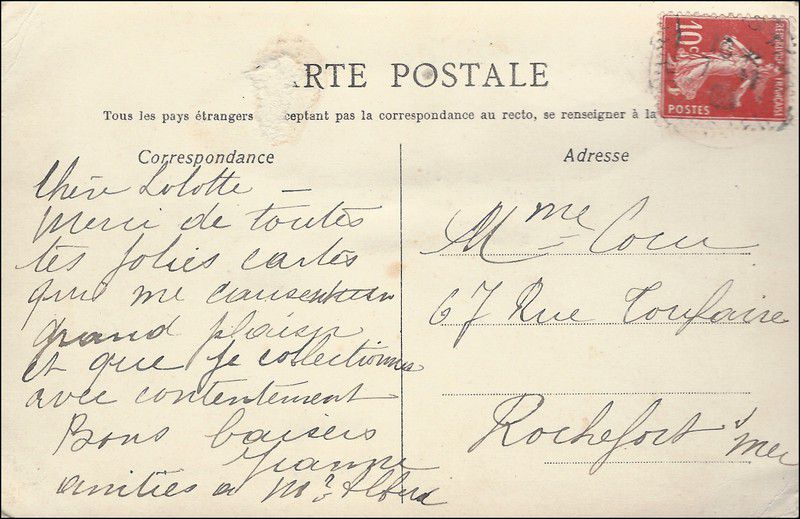 ARTE POSTALE
Tous les pays étrangers ceptant pas la correspondance au recto, se renseigner à la
10c
POSTES
Correspondance
Adresse
Chère Lolotte —
Merci de toutes
tes jolies cartes
qui me causent un
grand plaisir
et que je collectionne
avec contentement
Bons baisers
Jeanne
amitiés a Mr Albert
Mme Coeu
67 Rue Toufaire
Rochefort s/ mer